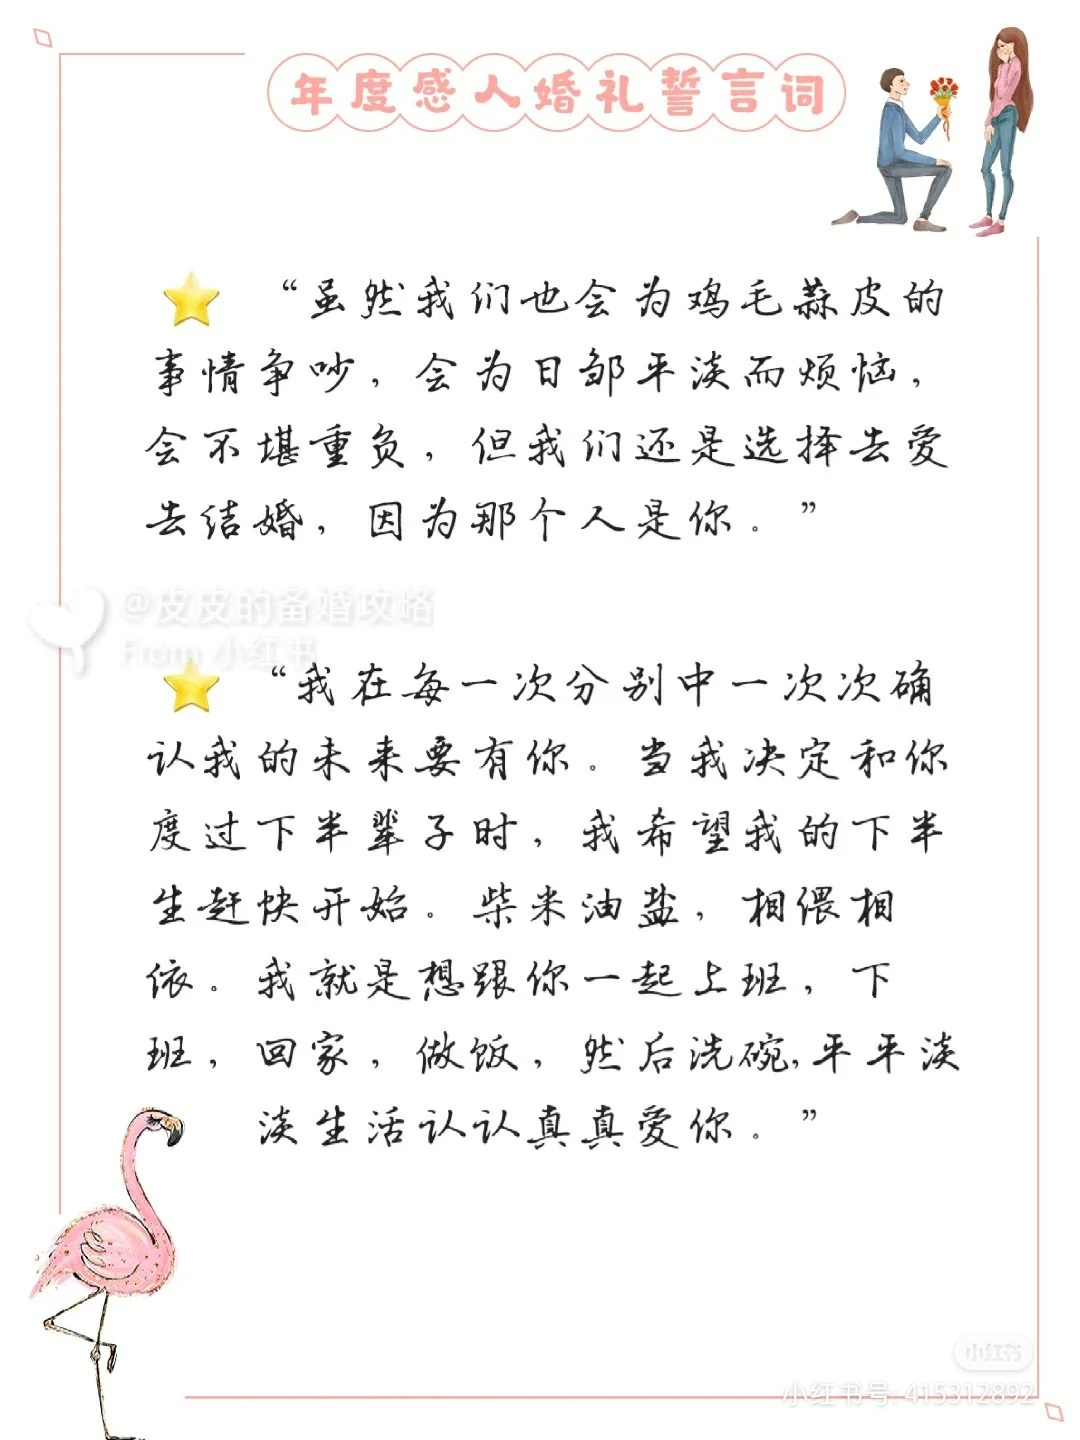 年度感人婚礼誓言词
“虽然我们也会为鸡毛蒜皮的
事情争吵，会为日邹平淡而烦恼，
会不堪重负，但我们还是选择去爱
去结婚，因为那个人是你。”
@皮皮的备婚攻略
From 小红书
“我在每一次分别中一次次确
认我的未来要有你。当我决定和你
度过下半辈子时，我希望我的下半
生赶快开始。柴米油盐，相偎相
依。我就是想跟你一起上班，下
班，回家，做饭，然后洗碗,平平淡
淡生活认认真真爱你。”
小红书
小红书号: 415312892